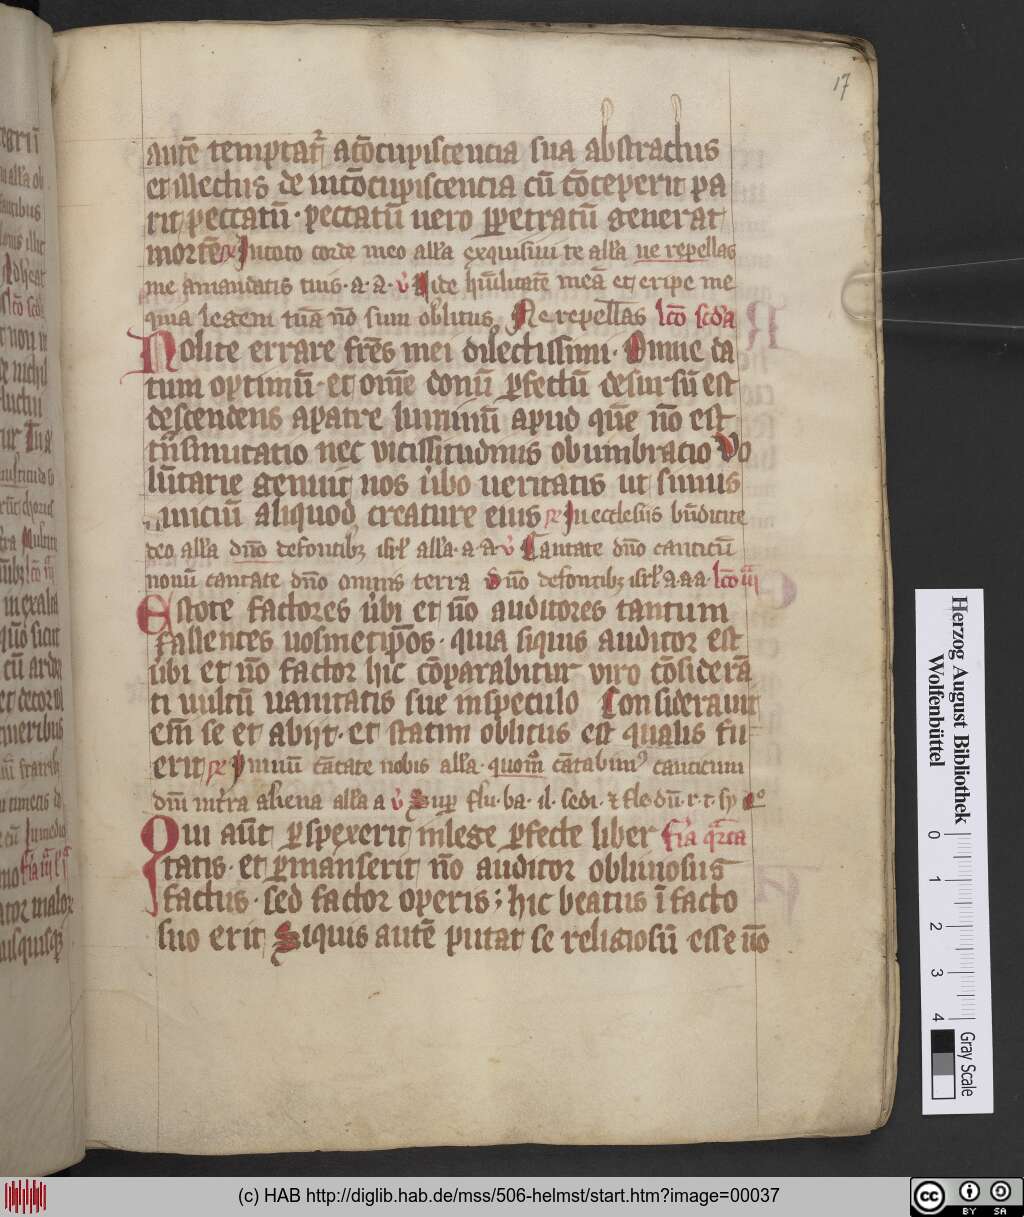 17
autē temptat᷑ acōcupiscencia sua abstractus
et illectus de in cōcupiscencia cū cōceperit pa
rit peccatū · peccatū uero ꝑpetratū generat
mortē ℞ In toto corde meo all'a exquisiui te all'a ne repellas
me amandatis tuis · a · a · v̓ Vide hūilitatē meā et eripe me
quia legem tuā nō sum oblitus Ne repellas lc̄o scd'a
Nolite errare fr̄es mei dilectissimi · Omne da
tum optimū · et om̄e donū ꝑfectū desursū est
descendens apatre luminū apud quē nō est
tn̄smutatio nec vicissitudinis obumbracio Vo
lūtarie genuit nos v̓bo ueritatis ut simus
iniciū aliquod creature eius ℞ In ecclesiis bn̄dicite
deo all'a dn̄o defontibꝫ isrl' all'a · a · a v̓ Cantate dn̄o canticū
nouū cantate dn̄o omnis terra Dn̄o defontibꝫ isrl' a a a · lc̄o iii
Estote factores v̓bi et nō auditores tantum
fallentes uosmetip̄os · quia siquis auditor est
v̓bi et nō factor hic cōparabitur viro cōsiderā
ti uultū uanitatis sue inspeculo Considerauit
em̄ se et abijt · et statim oblitus est qualis fu
erit ℞ Ymnū cātate nobis all'a · quom̄ cātabim᷒ canticum
dn̄i int̓ra aliena all'a a v̓ Sup̱ flu · ba · il · sedi · ⁊ fle · dū · r · t · sy
Qui aūt ꝑspexerit inlege ꝑfecte liber f̓ia q̄rta
tatis · et ꝑmanserit nō auditor obliuiosus
factus · sed factor operis ; hic beatus ī facto
suo erit Siquis autē putat se religiosū esse nō
Herzog August Bibliothek
Wolfenbüttel
0 1 2 3 4
Gray Scale
(c) HAB http://diglib.hab.de/mss/506-helmst/start.htm?image=00037
cc BY SA